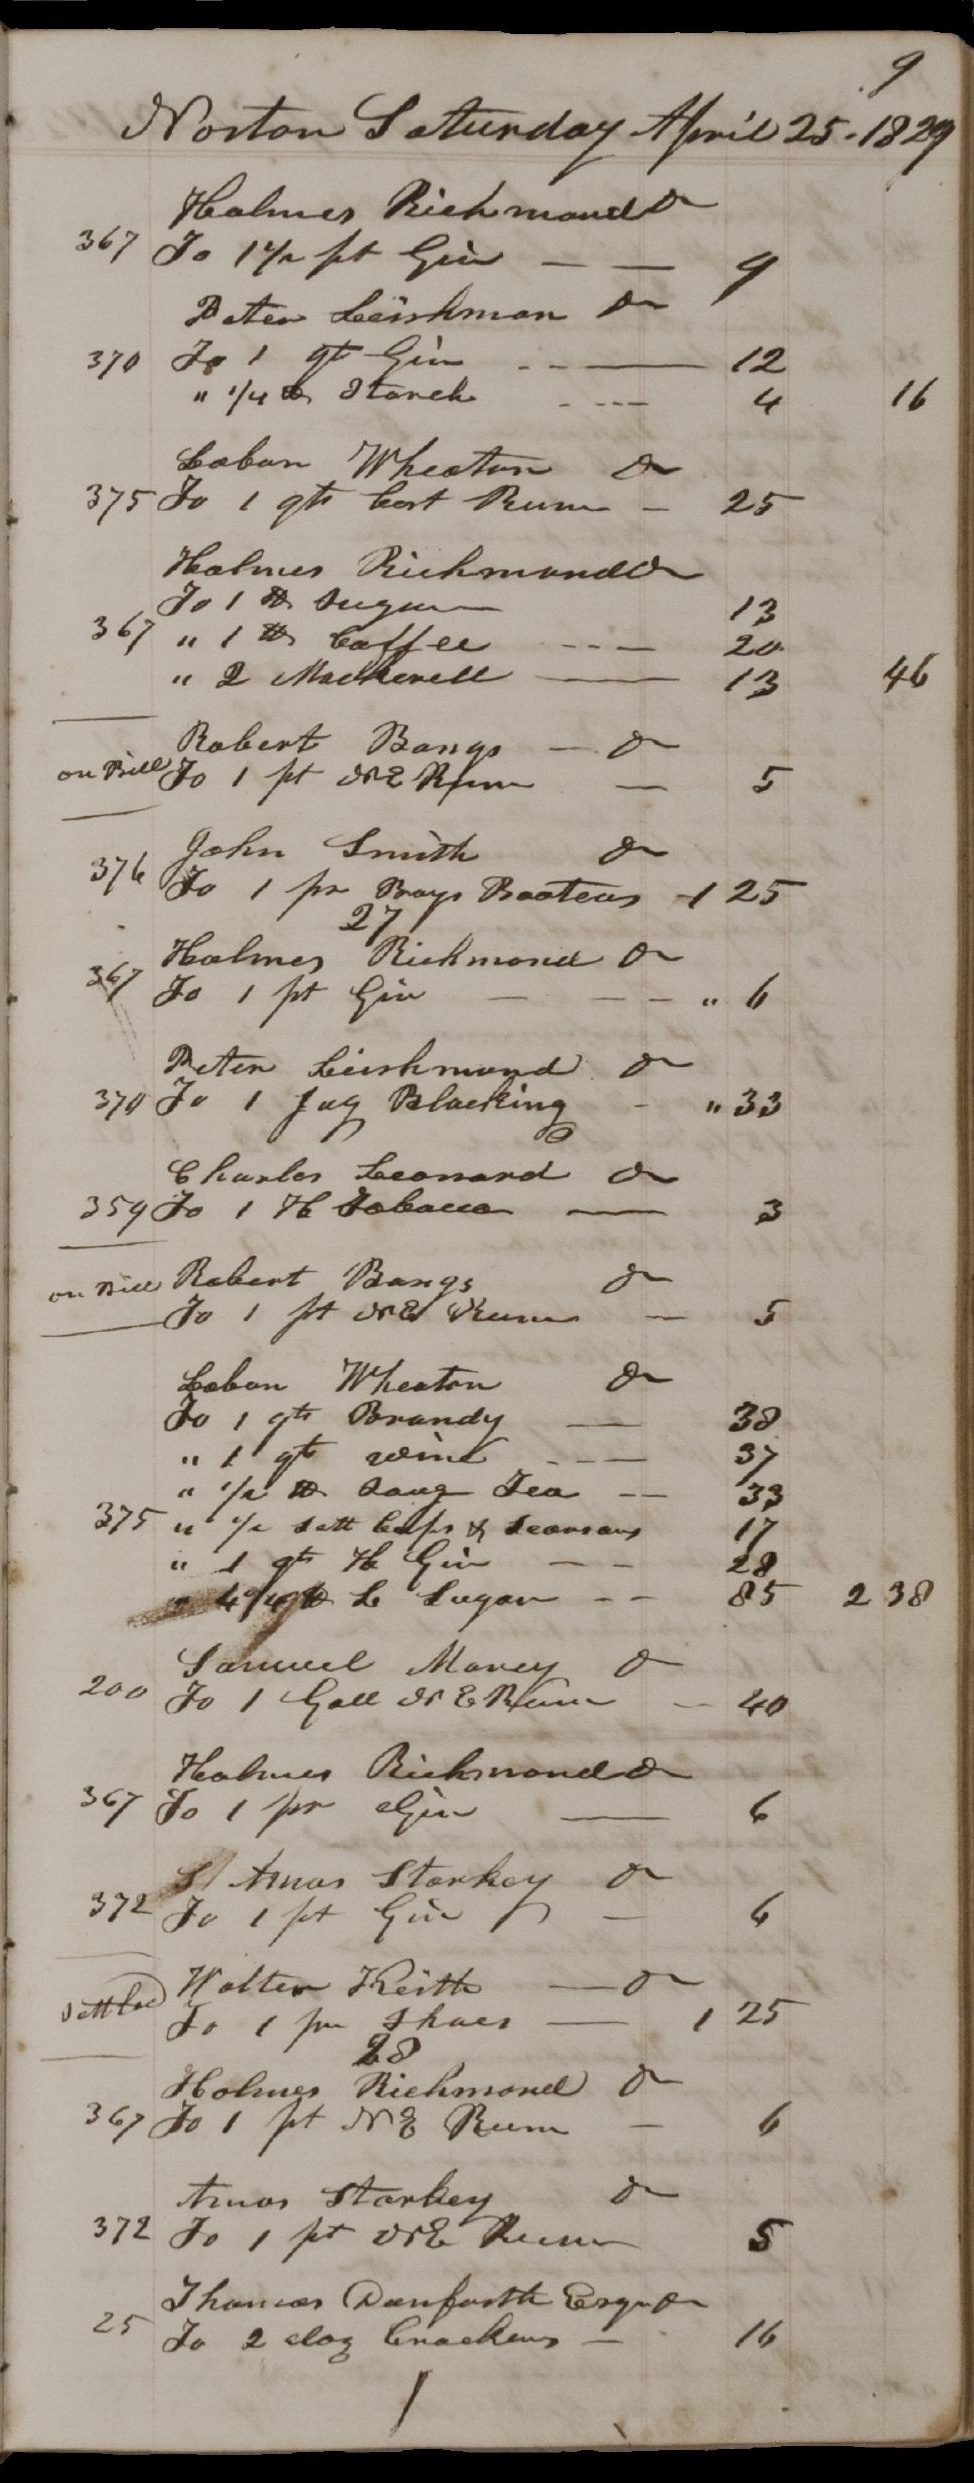 9
Norton Saturday April 25 - 1829
Holmes Richmond Dr
367 To 1 1/2 pt Gin — — 9
Peter Leishman Dr
370 To 1 qt Gin - - — 12
" 1/4 lb Starch - - - - 4 16
Laban Wheaton Dr
375 To 1 qts Cort Rum - 25
Holmes Richmond Dr
To 1 lb Sugar 13
367 " 1 lb Coffee - - — 20
" 2 Mackerell — 13 46
Robert Bangs — Dr
on Bill To 1 pt N E Rum — 5
John Smith Dr
376 To 1 pr Boys Bootees - 1 25
27
Holmes Richmond Dr
367 To 1 pt Gin — — - — " 6
Peter Leishmand Dr
370 To 1 Jug Blacking - " 33
Charles Leonard Dr
359 To 1 H Tobacco — 3
on Bill Robert Bangs Dr
To 1 pt N E Rum — 5
Laban Wheaton Dr
To 1 qts Brandy — 38
" 1 qts wine - - — 37
" 1/2 lb Soug Tea — - 33
375 " 1/2 Sett Cups & Scarsars 17
" 1 qts H Gin — - 28
" lb L Sugar - - 85 2 38
Samuel Morey Dr
200 To 1 Gall N E Rum — 40
Holmes Richmond Dr
367 To 1 pr Gin — 6
Amos Starkey Dr
372 To 1 pt Gin — 6
Walter Keith — Dr
Settled To 1 pr Shoes — 1 25
28
Holmes Richmond Dr
367 To 1 pt N E Rum — 6
Amos Starkey Dr
372 To 1 pt N E Rum 5
Thomas Danforth Esqr Dr
25 To 2 doz Crackers — 16